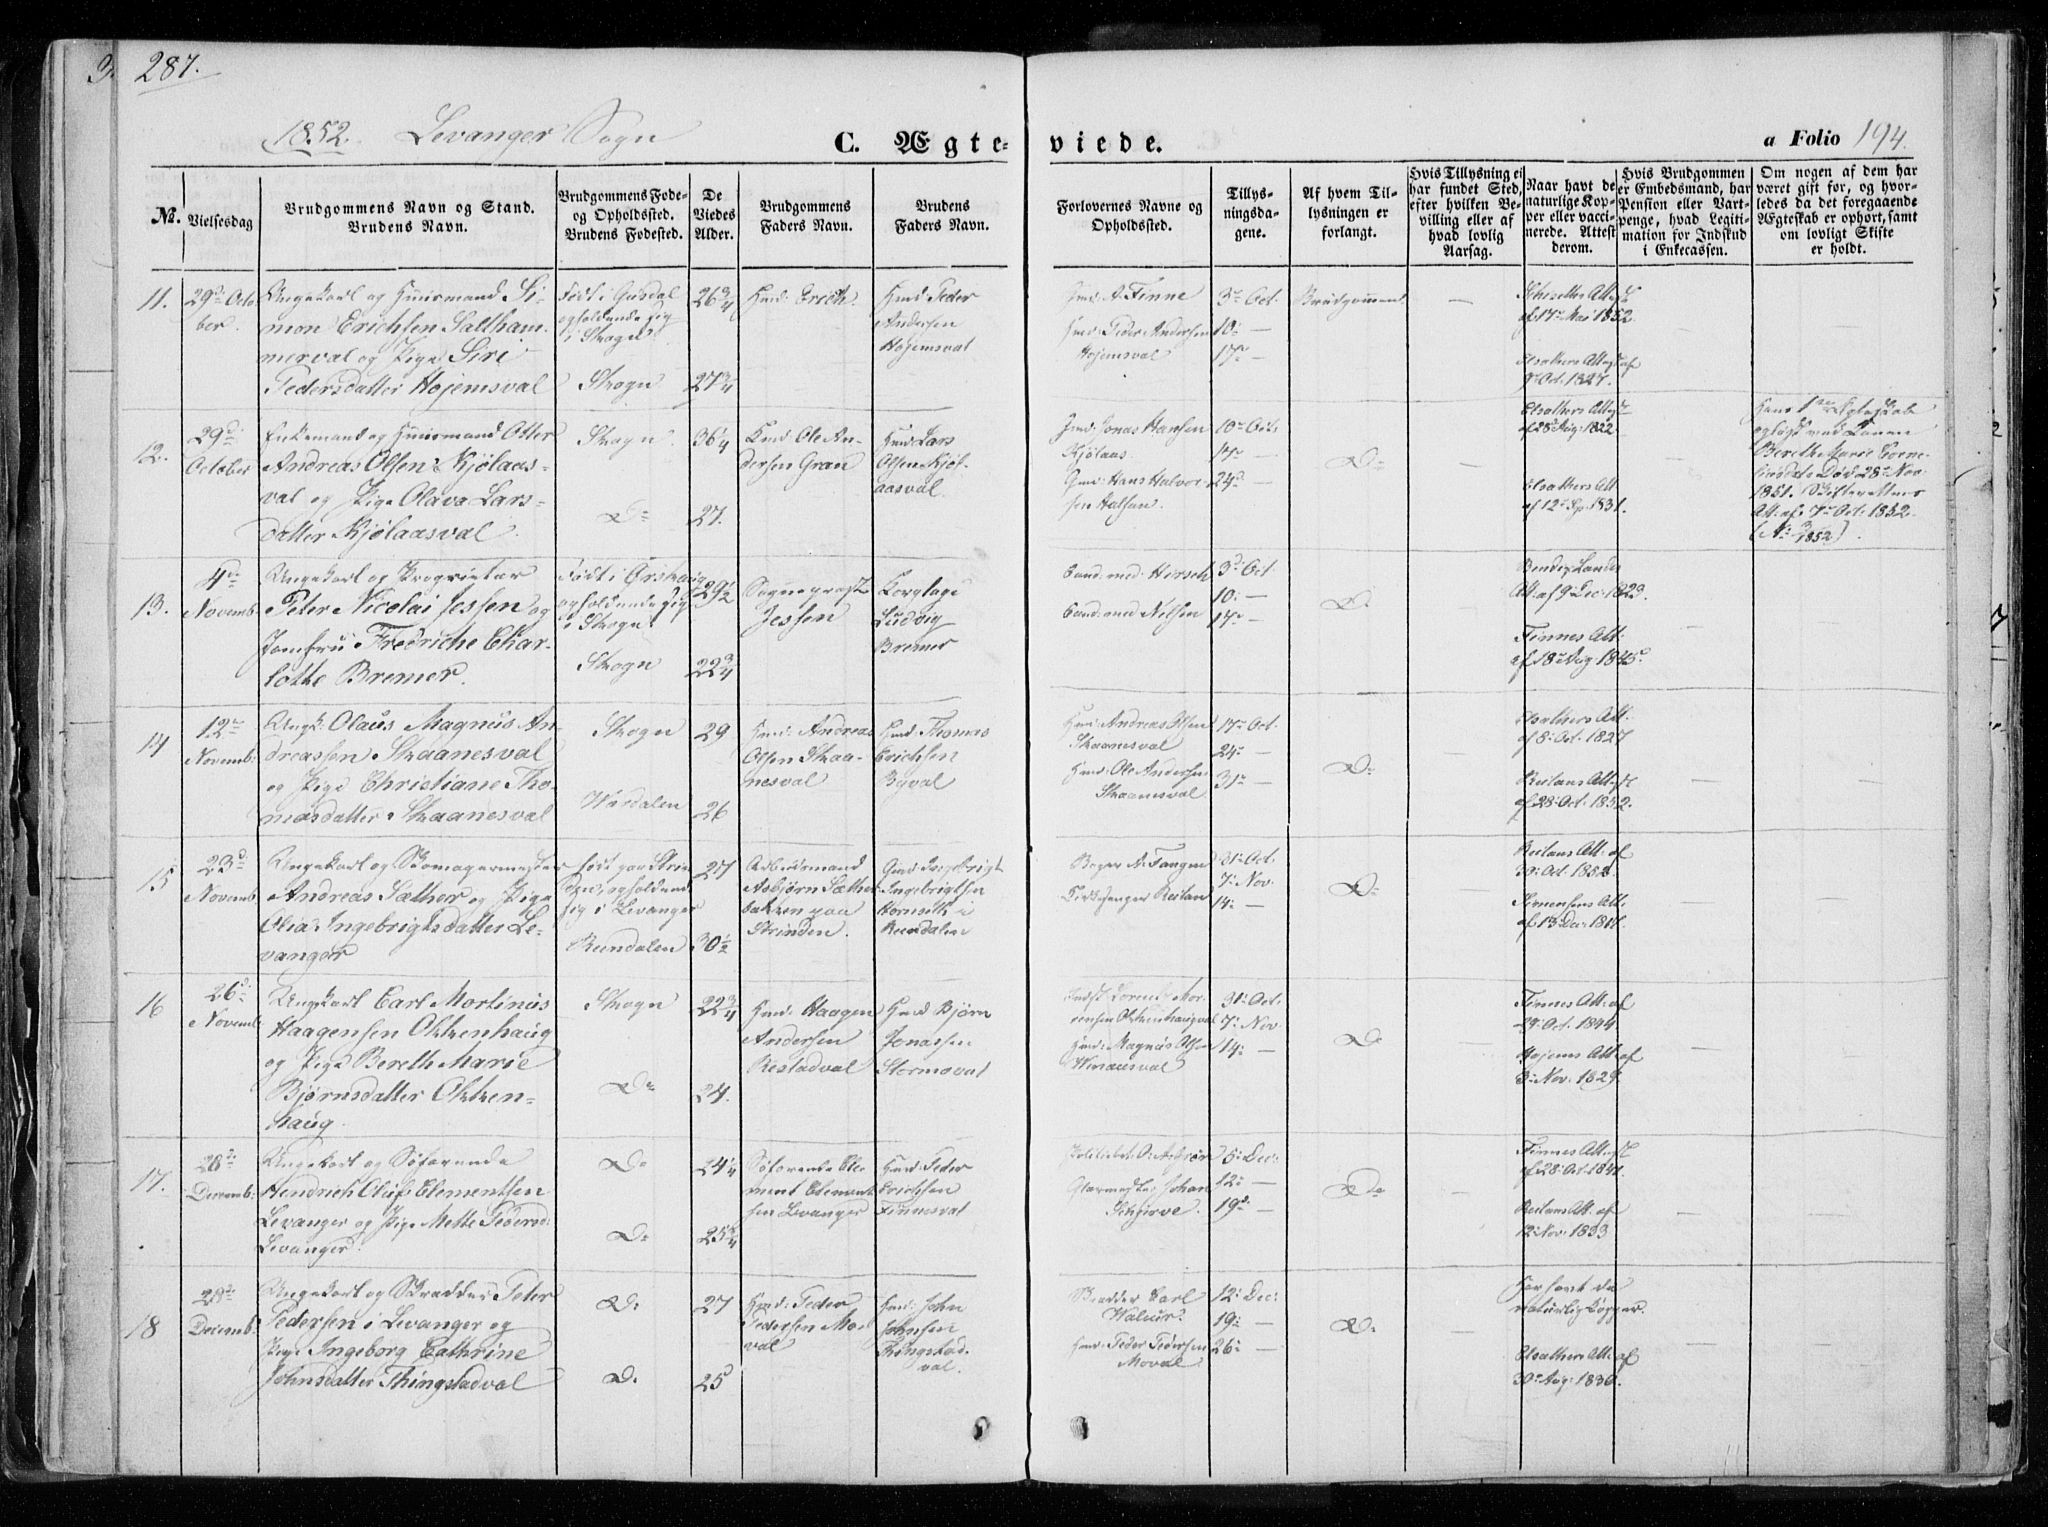 287.
1852. Levanger Sogn
C. Ægte-
viede.
a Folio 194.
No.
Vielsesdag
Brudgommens Navn og Stand.
Brudens Navn.
Brudgommens Føde-
og Opholdssted.
Brudens Fødested.
De
Viedes
Alder.
Brudgommens
Faders Navn.
Brudens
Faders Navn.
Forlovernes Navne og
Opholdssted.
Tillys-
ningsda-
gene.
Af hvem Til-
lysningen er
forlangt.
Hvis Tillysning ei
har fundet Sted,
efter hvilken Be-
villing eller af
hvad lovlig
Aarsag.
Naar havt de
naturlige Kop-
per eller vacci-
nerede. Attest
derom.
Hvis Brudgommen
er Embedsmand, har
Pension eller Vart-
penge, hvad Legiti-
mation for Indskud
i Enkecassen.
Om nogen af dem har
været gift før, og hvor-
ledes da det foregaaende
Ægteskab er ophørt, samt
om lovligt Skifte
er holdt.
11.
29de Octo
ber.
Ungekarl og Huusmand Si-
mon Erichsen Saltham-
merval og Pige Siri
Pedersdatter Hojemsval
Født i
opholdende sig
i Skogn
Skogn
26 3/4
27 3/4
Hmd: Erich
Hmd: Peder
Andersen
Hojemsval
A. Finne
Hmd: Peder Andersen
Hojemsval
3de Oct.
10: —
17de —
Brudgommen
—
Att:
af 17de Mai 1852.
Elsathers Attest af
Oct. 1827.
12.
29de
October
Enkemand og Huusmand Otter
Andreas Olsen Kjølaas-
val og Pige Olava Lars-
datter Kjølaasval.
Skogn.
Do
36 1/4
27.
Hmd: Ole An-
dersen Gran
Hmd: Lars
Olsen Kjøl-
aasval.
Jonas Hansen
Kjølaas.
Hans Halvor-
sen Halsan.
10de Oct:
17de —
24de —
Do
—
Elsathers Attest
af 28 Aug: 1822.
Elsathers Att
af 12te Sp. 1831.
Hans 1ste Ægteskab
opløst ved Konen
Bereth Marie Corne-
liusdatr Død 28de Nov
1851. Skifterettens
Att: af 7de Oct: 1852.
13.
4de
Novemb.
Ungekarl og Proprietær
Peter Nicolai Jessen og
Jomfru Fredriche Char-
lotte Bremer.
Født i Ørskoug
opholdende sig
i Skogn.
Skogn
29 1/2
22 3/4
Sognepræst
Jessen
Ludvig
Bremer
Cand: med: Hirsch
Cand: med Nilsen
3de Oct
10: —
17de —
Do
Att: af 9 Dec: 1823.
Finnes Att:
af 18de Aug 1845.
14
12te
Novemb:
Ungk: Olaus Magnus An-
dreassen Skaanesval
og Pige Christiane Tho-
masdatter Skaanesval
Skogn
Værdalen
29
26
Hmd: Andreas
Olsen Skaa-
nesval
Hmd: Thomas
Erichsen
Byval
Hmd: Andreas Olsen
Skaanesval
Hmd: Ole Andersen
Skaanesval
17de Oct.
24de —
31te —
Do
—
Elsathers Att.
af 8: Oct. 1827
Reitans Attest
af 28: Oct. 1852.
15
23de
Novemb.
Ungekarl og Skomagermester
Andreas Sæther og Pige
Olia Ingebrigtsdatter Le-
vanger
født paa Strin
den, opholdend
sig i Levanger
Rendalen
27
30 1/2
Arbeidsmand
Asbjørn Sæther-
bakken paa
Strinden.
Ingebrigt
Ingebrigtsen
Hornseth i
Rendalen
Bager N. Fangen
Kirkesanger Reitan
31te Oct.
7: Nov.
14: —
Do
—
Reitans Att: af
30: Oct. 1852.
Simensens Att:
af 13 Dec:
16
26de
Novemb:
Ungekarl Carl Martinus
Haagensen Okkenhaug
og Pige Bereth Marie
Bjørnsdatter Okken-
haug.
Skogn
Do
22 3/4
24.
Hmd: Haagen
Andersen
Restadval
Hmd Bjørn
Jonassen
Stormoval
Lorents Mor-
tensen Okkenhaugval
Hmd: Magnus Olsen
31te Oct.
7: Nov:
14: —
Do
—
Finnes Att: af
29: Oct. 1844.
Hojems Att: af
3: Nov: 1829.
17.
28de
Decemb:
Ungekarl og Søfarende
Hendrich Oluf Clementsen
Levanger og Pige Mette Pedersd:
Levanger.
Do
Do
24 1/4
25 3/4
Søfarende Cle-
ment Clement
sen Levanger
Hmd: Peder
Erichsen
Finnesval
Glarmester Johan
Schjerve.
5: Dec:
12: —
19de —
Do
—
Finnes Attest
af 28: Oct. 1841.
Reitans Att: af
12 Nov: 1833
18
28de
Decemb:
Ungekarl og Skrædder Peter
Pedersen i Levanger og
Pige Ingeborg Cathrine
Johnsdatter Thingstadval
Do
Do
27
25
Hmd: Peder
Pedersen Mo-
val
Hmd: John
Johnsen
Thingstad-
val.
Skrædder Carl
Hmd: Peder Pedersen
Moval
12: Dec:
19: —
26: —
Do
—
Har havt de
naturlig Kopper.
Elsathers Att: af
30te Aug: 1830.